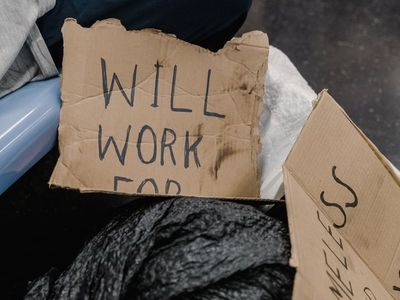 WILL
WORK
FOR
MELESS